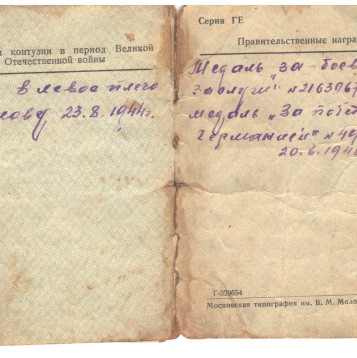 и контузии в период Великой
Отечественной войны
в левое плечо
23.8.1944г.
Серия ГЕ
Правительственные награ
Медаль „За боев
заслуги" №
медаль „За побед
Германией" №
Г-329654
Московская типография им. В. М. Моло